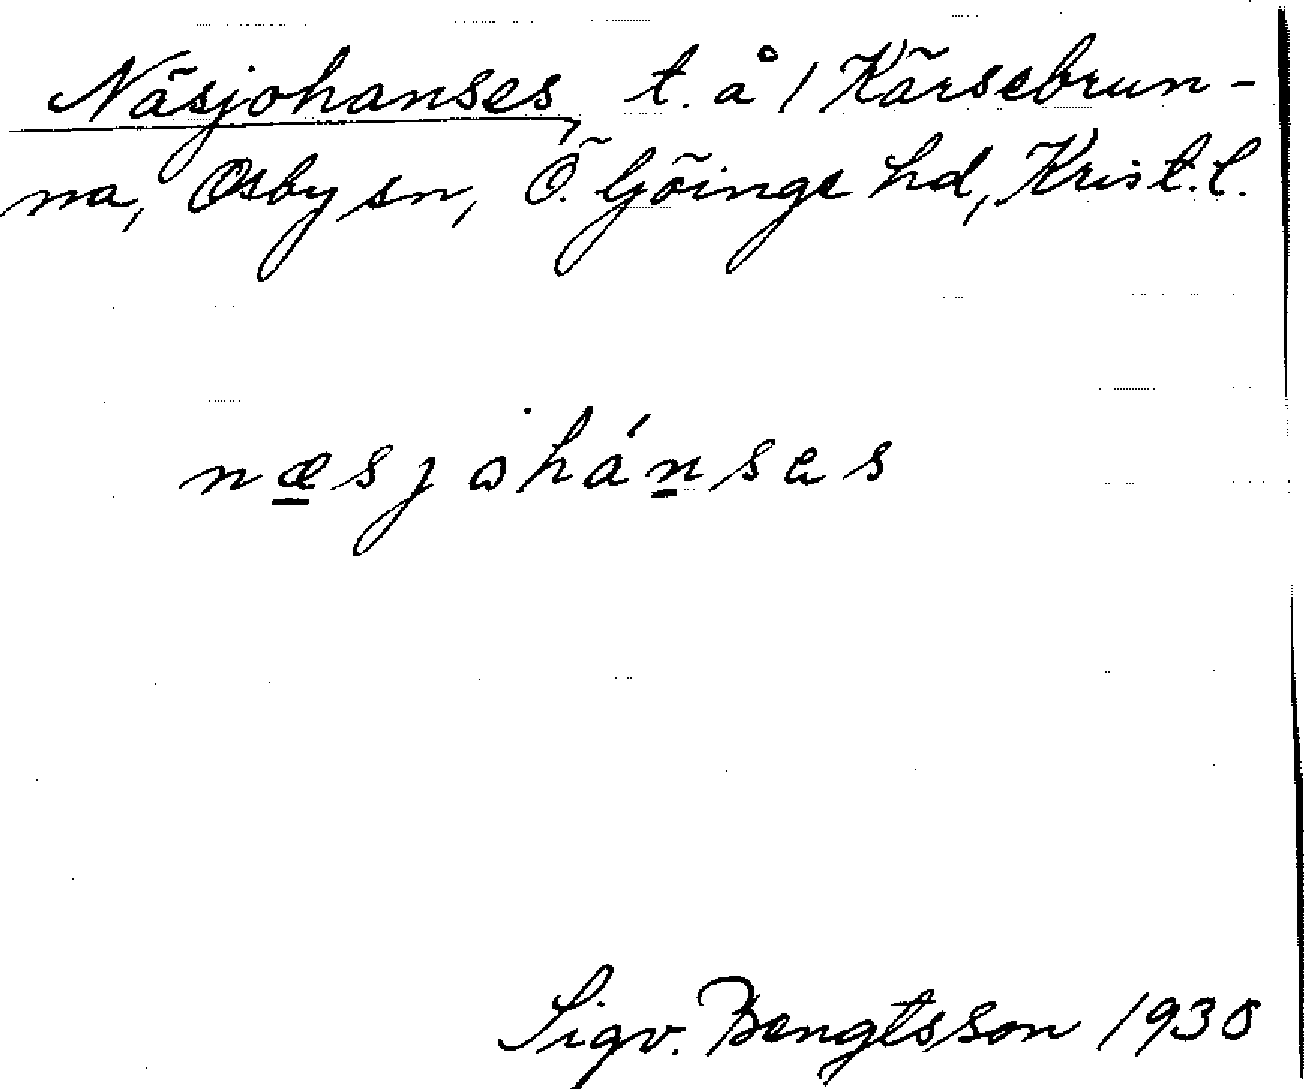 Näsjohanses, t. å 1 Kärsebrun-
na, Osby sn, Ö. Göinge hd, Krist. l.
næsjohánses
Sigv. Bengtsson 1938